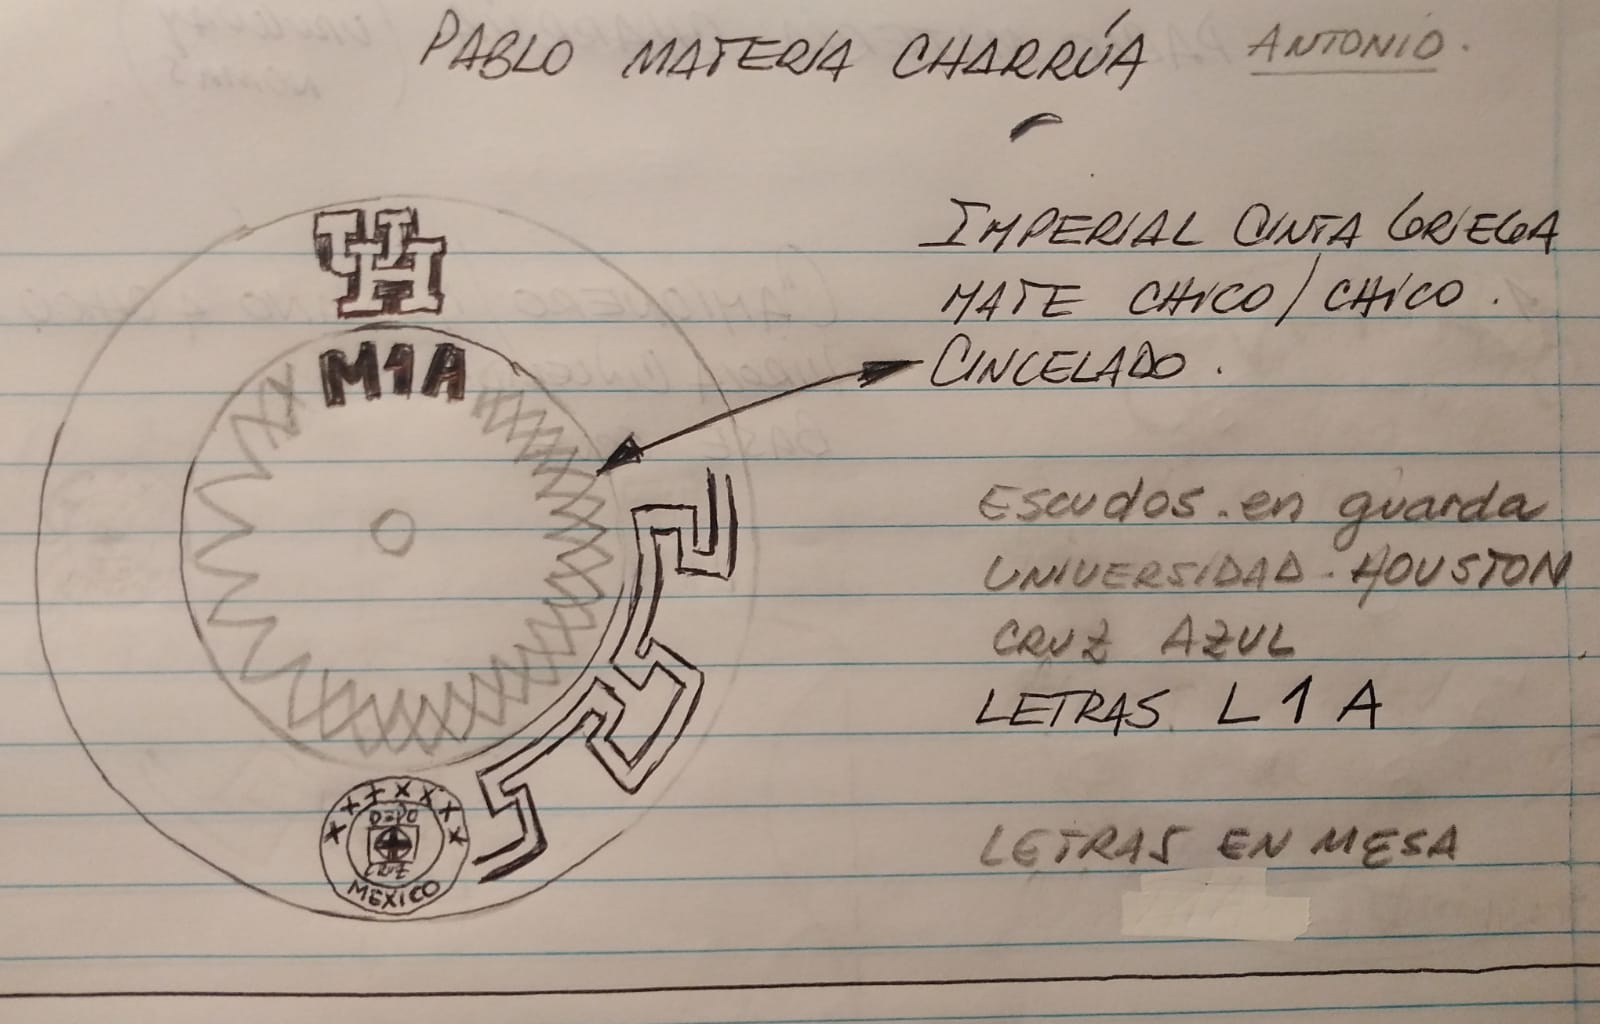 PABLO MATERIA CHARRÚA ANTONIO.
IMPERIAL CINTA GRIEGA
MATE CHICO / CHICO.
CINCELADO.
UH
M1A
Escudos en guarda
UNIVERSIDAD HOUSTON
CRUZ AZUL
LETRAS L 1 A
LETRAS EN MESA
MEXICO